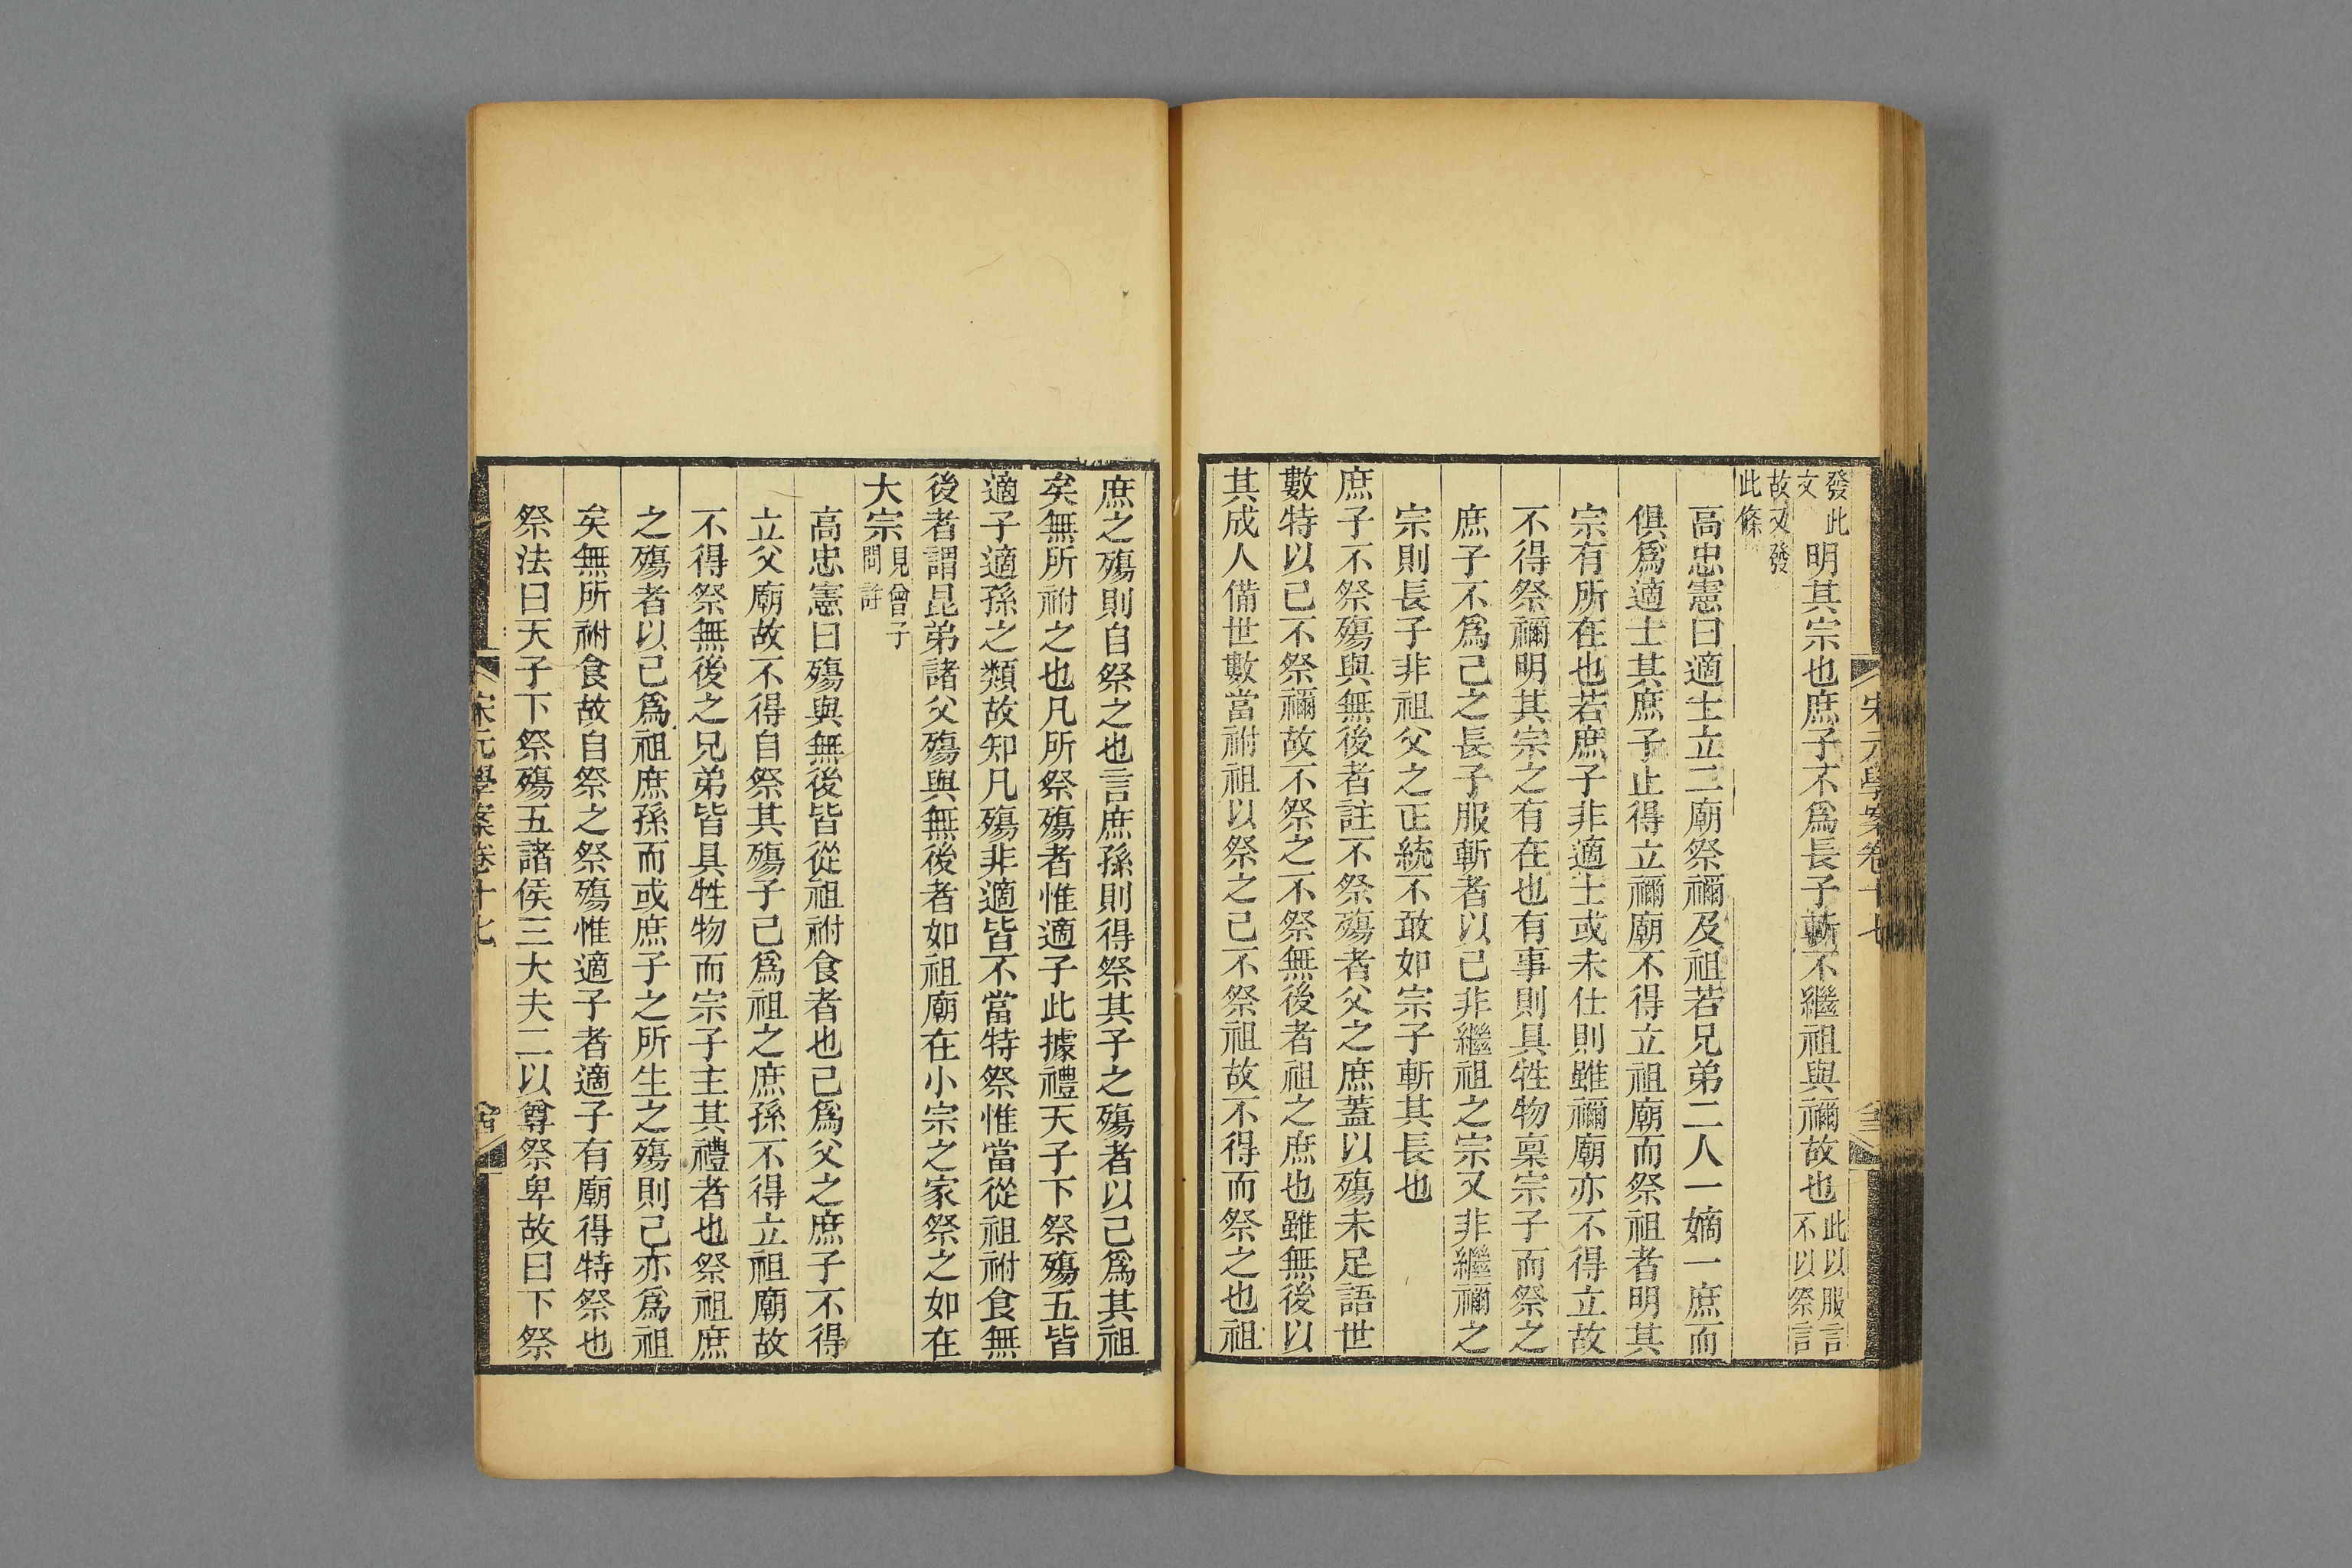 發此文明其宗也庶子不爲長子斬不繼祖與禰故也此以服言不以祭言
故又發此條
高忠憲曰適士立二廟祭禰及祖若兄弟二人一嫡一庶而
俱爲適士其庶子止得立禰廟不得立祖廟而祭祖者明其
宗有所在也若庶子非適士或未仕則雖禰廟亦不得立故
不得祭禰明其宗之有在也有事則具牲物稟宗子而祭之
庶子不爲己之長子服斬者以己非繼祖之宗又非繼禰之
宗則長子非祖父之正統不敢如宗子斬其長也
庶子不祭殤與無後者註不祭殤者父之庶蓋以殤未足語世
數特以己不祭禰故不祭之不祭無後者祖之庶也雖無後以
其成人備世數當祔祖以祭之己不祭祖故不得而祭之也祖
宋元學案卷十七
庶之殤則自祭之也言庶孫則得祭其子之殤者以己爲其祖
矣無所祔之也凡所祭殤者惟適子此據禮天子下祭殤五皆
適子適孫之類故知凡殤非適皆不當特祭惟當從祖祔食無
後者謂昆弟諸父殤與無後者如祖廟在小宗之家祭之如在
大宗見曾子問註
高忠憲曰殤與無後皆從祖祔食者也己爲父之庶子不得
立父廟故不得自祭其殤子己爲祖之庶孫不得立祖廟故
不得祭無後之兄弟皆具牲物而宗子主其禮者也祭祖庶
之殤者以己爲祖庶孫而或庶子之所生之殤則己亦爲祖
矣無所祔食故自祭之祭殤惟適子者適子有廟得特祭也
祭法曰天子下祭殤五諸侯三大夫二以尊祭卑故曰下祭
宋元學案卷十七